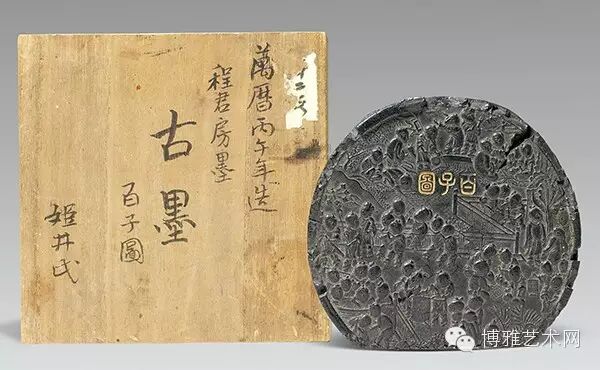 十二
萬暦丙午年造
程君房墨
古墨
百子圖
姫井氏
百子圖
博雅艺术网